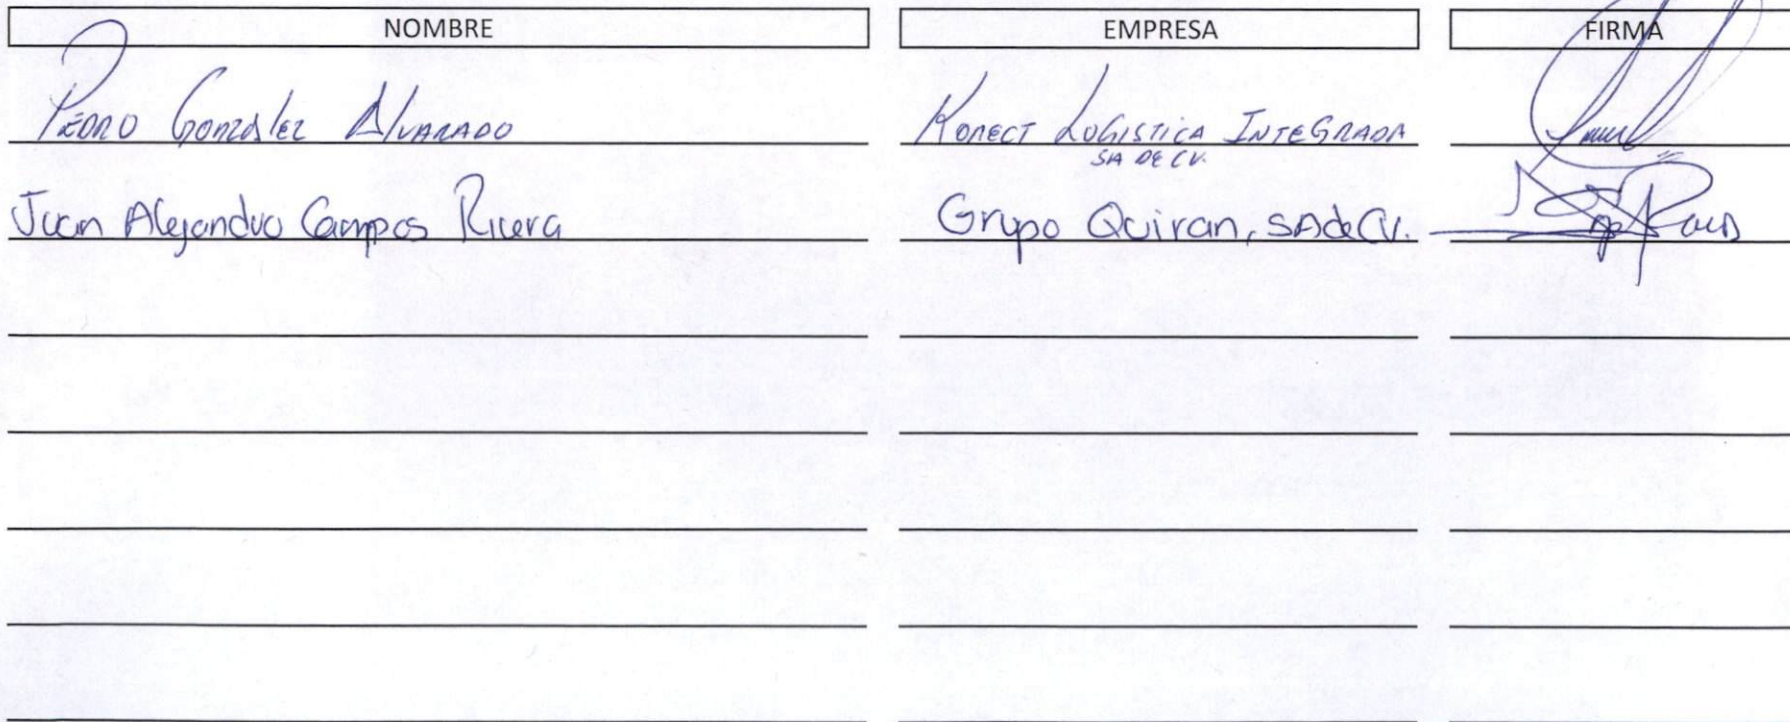 NOMBRE EMPRESA FIRMA
PEDRO GONZALEZ ALVARADO KONECT LOGISTICA INTEGRADA
SA DE CV.
Juan Alejandro Campos Rivera Grupo Quiran, SA de CV.